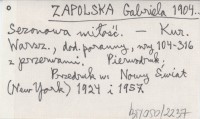 ZAPOLSKA Gabriela 1904..
Sezonowa miłość. — Kur.
Warsz., dod. poranny, nry 104-316
z przerwami. Pierwodruk.
Przedruk w: Nowy Świat
(New York) 1924 i 1957